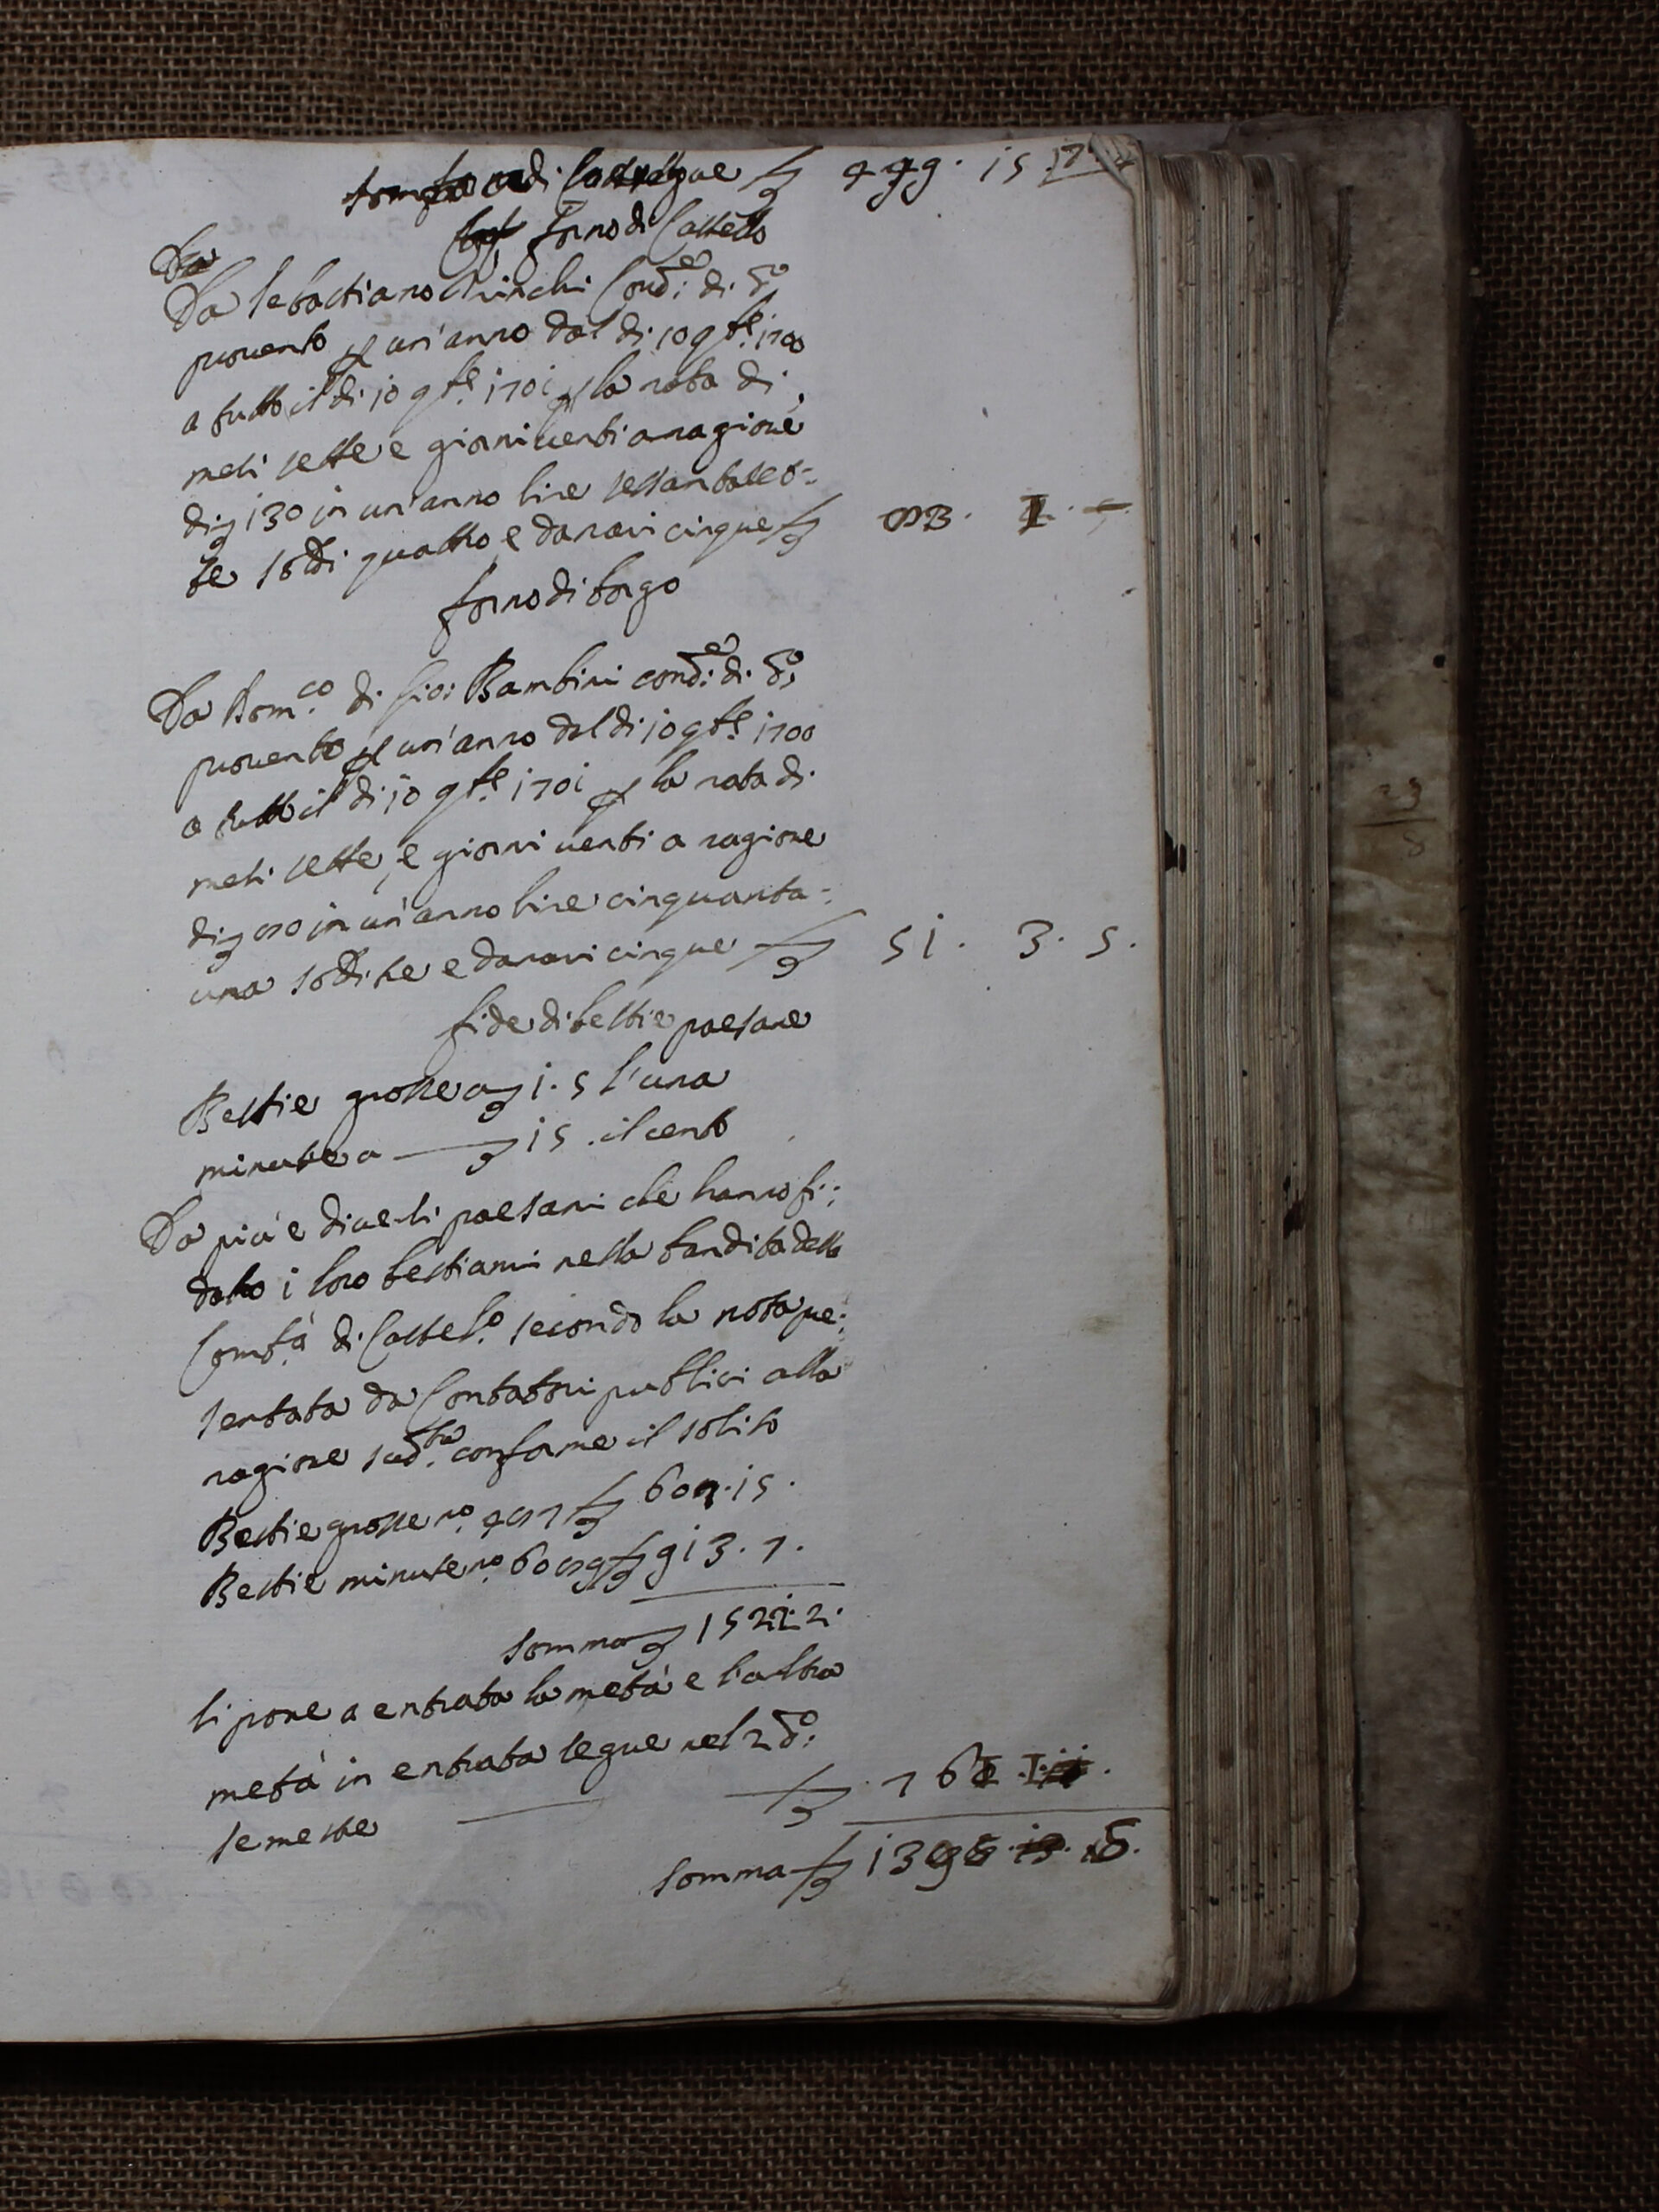 Forno di Castello
Da
Da Sebastiano Cond.e di d.o
provento p un'anno dal di 10 9bre 1700
a tutto il di 10 9bre 1701 p la rata di
mesi sette e giorni venti a ragione
di £ 130 in un'anno lire
te soldi quattro e danari cinque £
forno di borgo
Da Dom.co di Gio: Bambini cond.e di d.o
provento p un'anno dal di 10 9bre 1700
a tutto il di 10 9bre 1701 p la rata di
mesi sette, e giorni venti a ragione
di £ in un'anno lire cinquanta-
una soldi tre e danari cinque £ 51. 3. 5.
fide di bestie paesane
Bestie grosse a £ 1. 5 l'una
minute a £ 15. il cento
Da piu e diversi paesani che hanno fi:
dato i loro bestiami nella bandita della
Com.tà di Castel.o secondo la nota pre:
sentata da Contatori publici alla
ragione sud.ta conforme il solito
Bestie grosse n.o 487 £ 608. 15.
Bestie minute n.o £ 913. 7.
Somma £ 1522. 2.
si pone a entrata la metà e l'altra
metà in entrata segue nel 2.do
semestre £ 761
Somma £